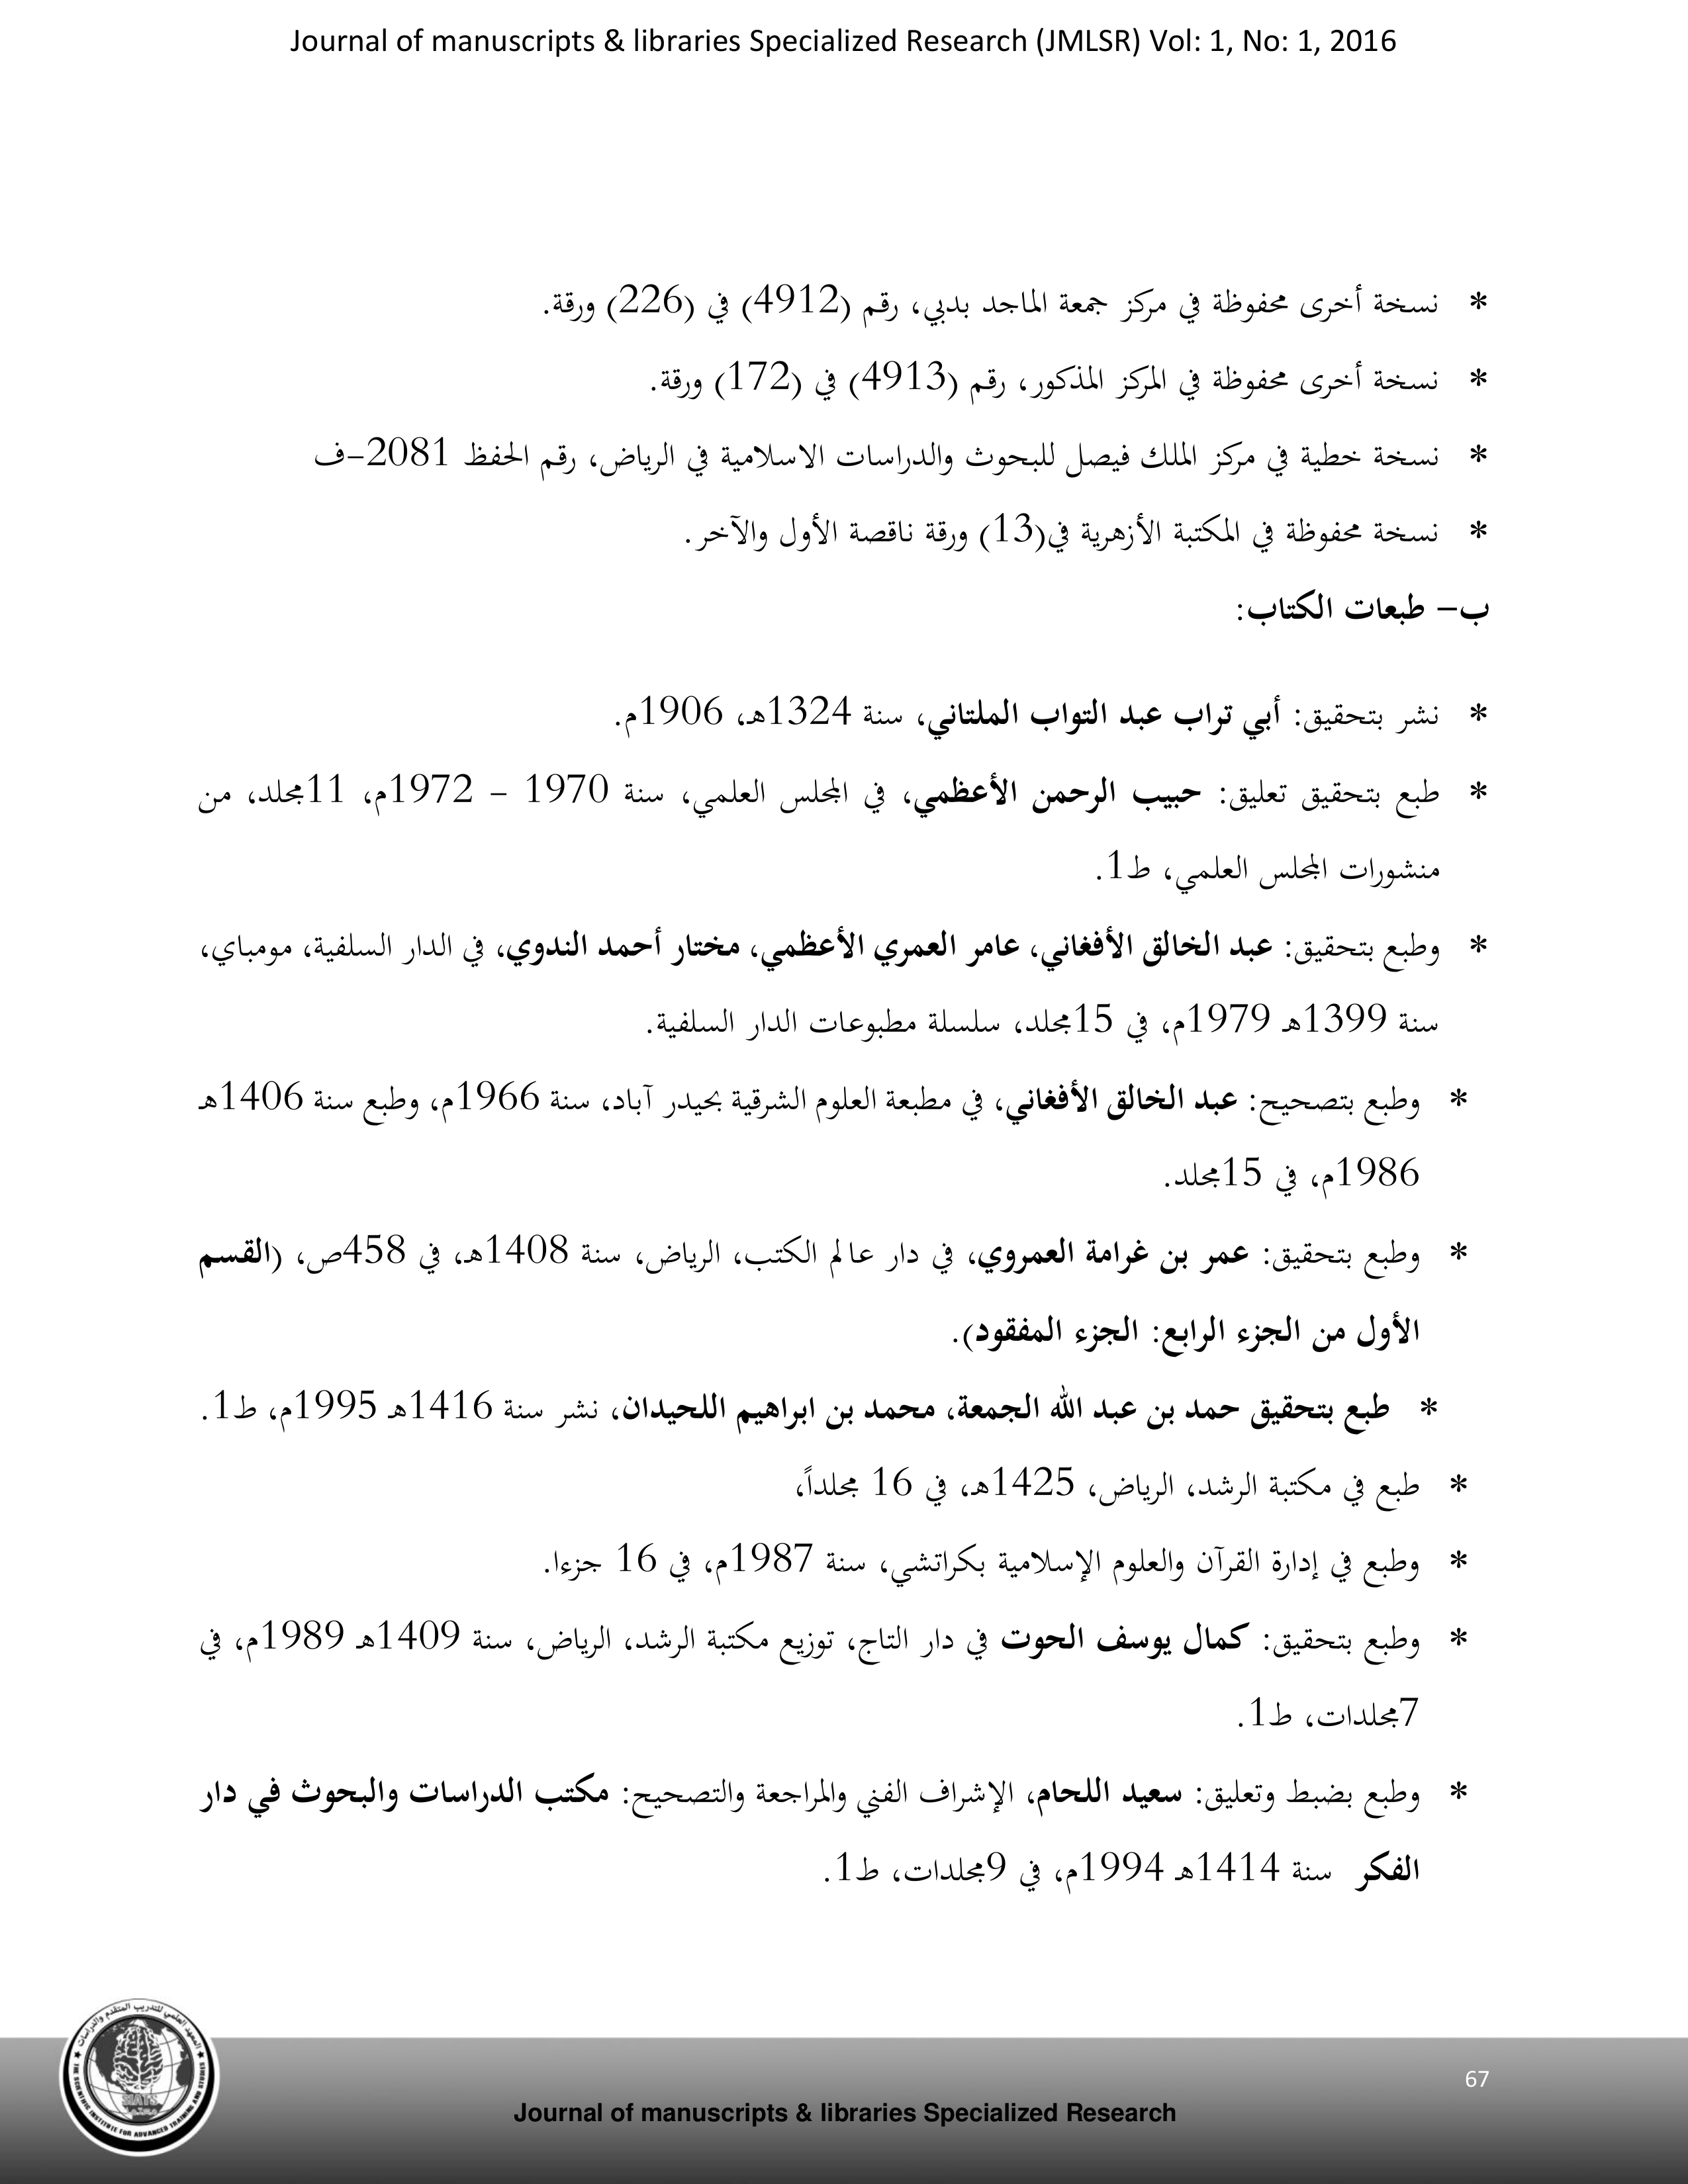 Journal of manuscripts & libraries Specialized Research (JMLSR) Vol: 1, No: 1, 2016
* نسخة أخرى محفوظة في مركز جمعة الماجد بدبي، رقم (4912) في (226) ورقة.
* نسخة أخرى محفوظة في المركز المذكور، رقم (4913) في (172) ورقة.
* نسخة خطية في مركز الملك فيصل للبحوث والدراسات الاسلامية في الرياض، رقم الحفظ 2081–ف
* نسخة محفوظة في المكتبة الأزهرية في(13) ورقة ناقصة الأول والآخر.
ب– طبعات الكتاب:
* نشر بتحقيق: أبي تراب عبد التواب الملتاني، سنة 1324هـ، 1906م.
* طبع بتحقيق تعليق: حبيب الرحمن الأعظمي، في المجلس العلمي، سنة 1970 – 1972م، 11مجلد، من
منشورات المجلس العلمي، ط1.
* وطبع بتحقيق: عبد الخالق الأفغاني، عامر العمري الأعظمي، مختار أحمد الندوي، في الدار السلفية، مومباي،
سنة 1399هـ 1979م، في 15مجلد، سلسلة مطبوعات الدار السلفية.
* وطبع بتصحيح: عبد الخالق الأفغاني، في مطبعة العلوم الشرقية بحيدر آباد، سنة 1966م، وطبع سنة 1406هـ
1986م، في 15مجلد.
* وطبع بتحقيق: عمر بن غرامة العمروي، في دار عالم الكتب، الرياض، سنة 1408هـ، في 458ص، (القسم
الأول من الجزء الرابع: الجزء المفقود).
* طبع بتحقيق حمد بن عبد الله الجمعة، محمد بن ابراهيم اللحيدان، نشر سنة 1416هـ 1995م، ط1.
* طبع في مكتبة الرشد، الرياض، 1425هـ، في 16 مجلداً،
* وطبع في إدارة القرآن والعلوم الإسلامية بكراتشي، سنة 1987م، في 16 جزءا.
* وطبع بتحقيق: كمال يوسف الحوت في دار التاج، توزيع مكتبة الرشد، الرياض، سنة 1409هـ 1989م، في
7مجلدات، ط1.
* وطبع بضبط وتعليق: سعيد اللحام، الإشراف الفني والمراجعة والتصحيح: مكتب الدراسات والبحوث في دار
الفكر سنة 1414هـ 1994م، في 9مجلدات، ط1.
67
Journal of manuscripts & libraries Specialized Research